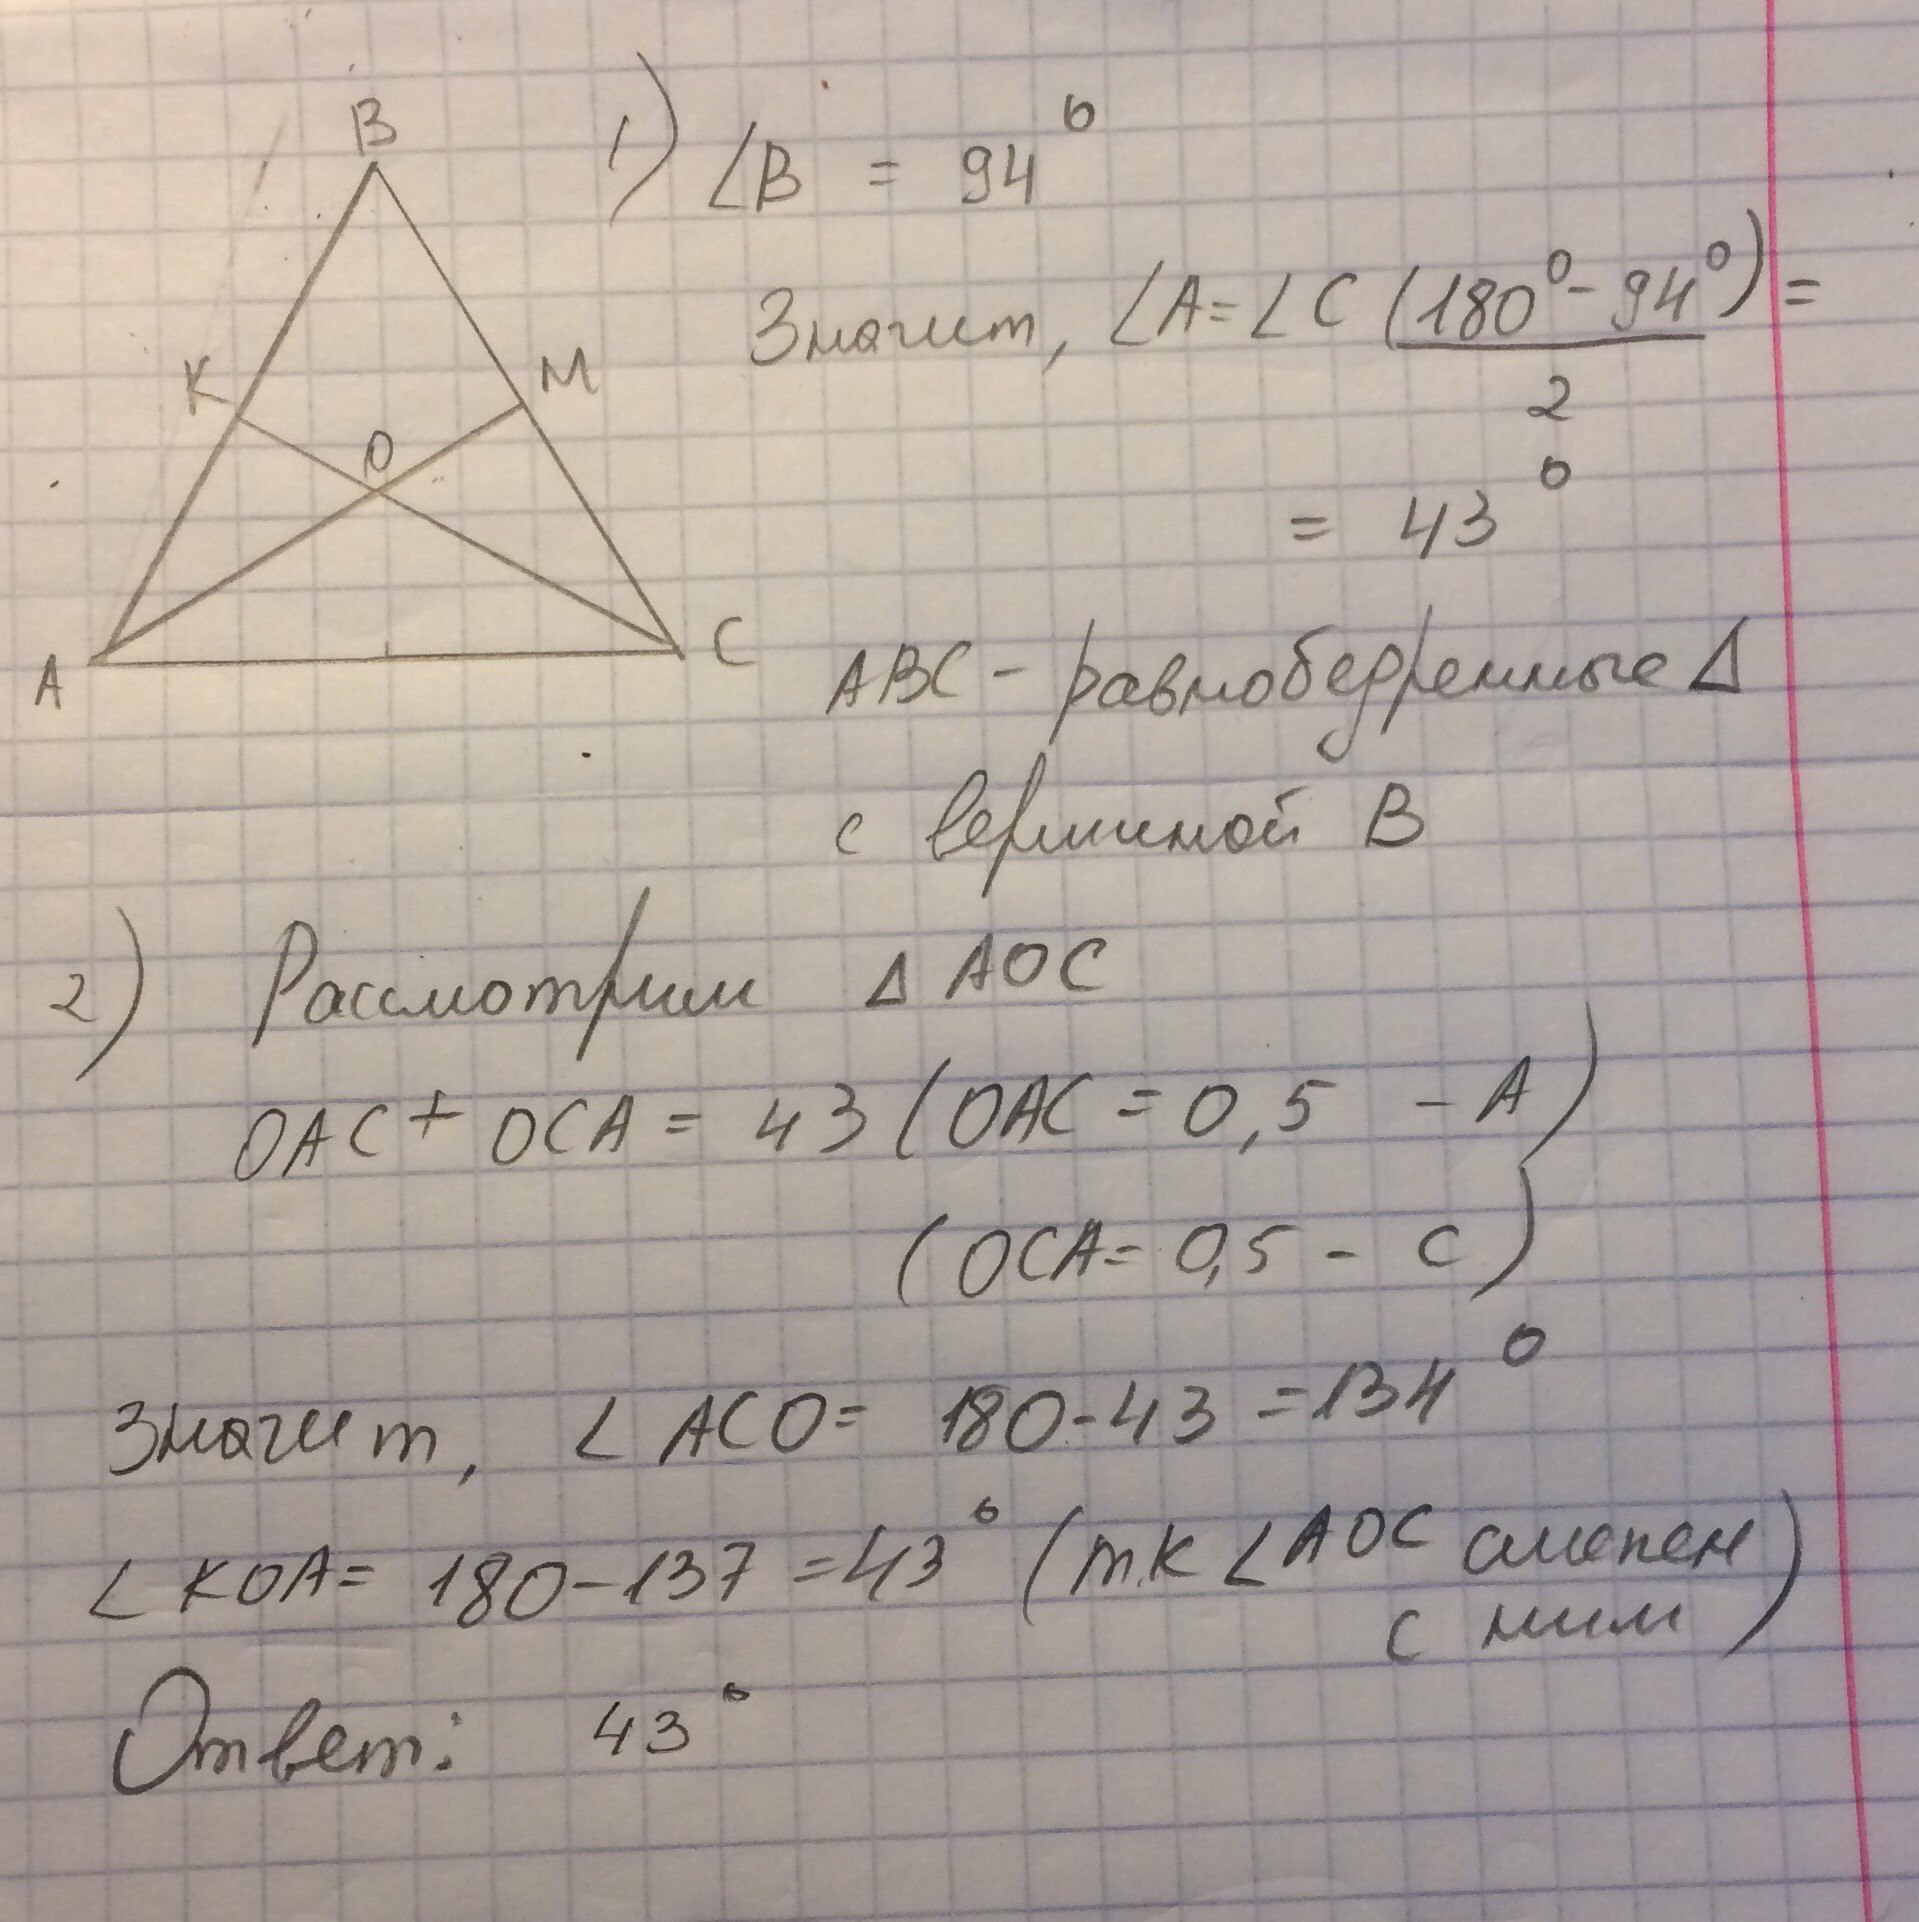 B
K
M
O
A
C
1) ∠B = 94°
Значит, ∠A=∠C (180°-94°) =
2
= 43°
ABC - равнобедренные Δ
с вершиной B
2) Рассмотрим Δ AOC
OAC + OCA = 43 (OAC = 0,5 - A)
(OCA = 0,5 - C)
Значит, ∠ACO = 180-43 = 134°
∠KOA = 180-137 = 43° (т.к ∠AOC смепен
с ним)
Ответ: 43°